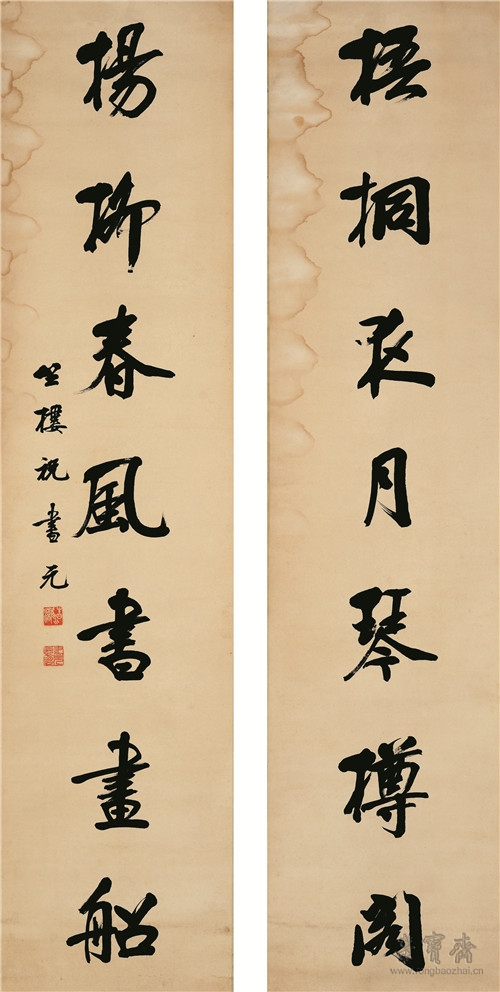 梧桐夜月琴樽閣
楊柳春風書畫船
竺樓祝書元
榮寶齋
www.rongbaozhai.cn